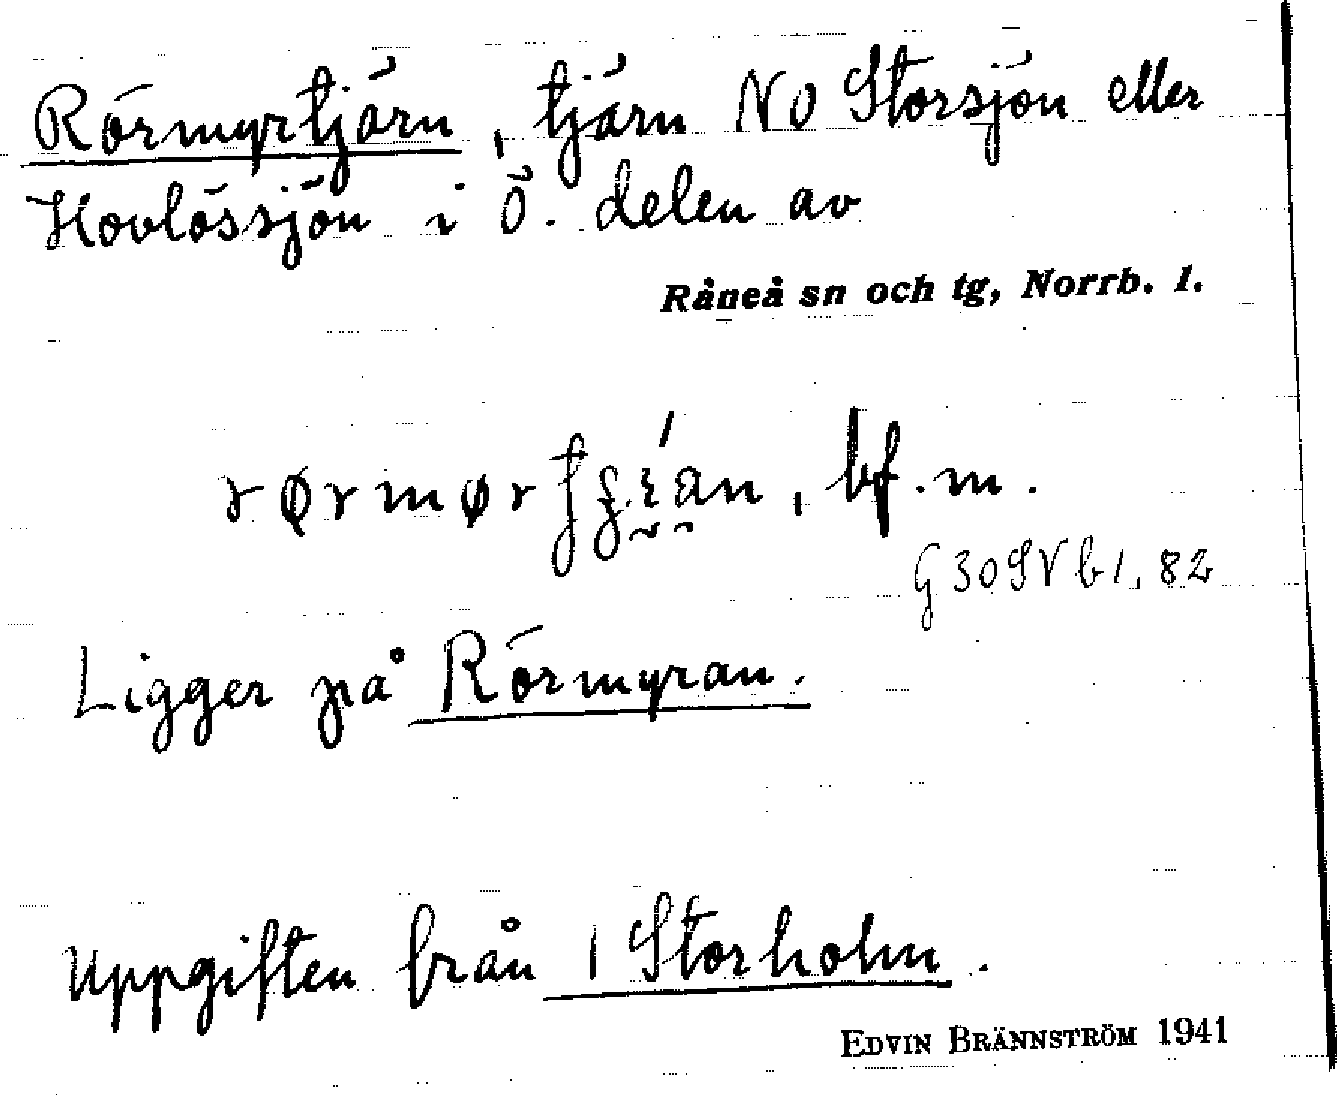 Rörmyrtjärn, tjärn NO Storsjön eller
Hovlössjön i Ö. delen av
Råneå sn och tg, Norrb. l.
bf. m.
G30SV b1, 82
Ligger på Rörmyran.
Uppgiften från 1 Storholm.
EDVIN BRÄNNSTRÖM 1941